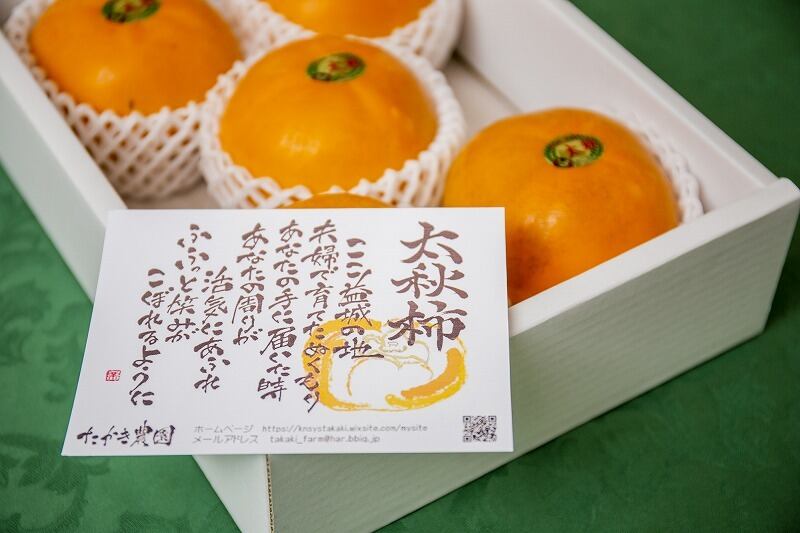 太秋柿
ここ益城の地
夫婦で育てたぬくもり
あなたの手に届いた時
あなたの周りが
活気にあふれ
ふふっと笑みが
こぼれるように
たかき農園
ホームページ https://knsystakaki.wixsite.com/mysite
メールアドレス takaki_farm@har.bbiq.jp